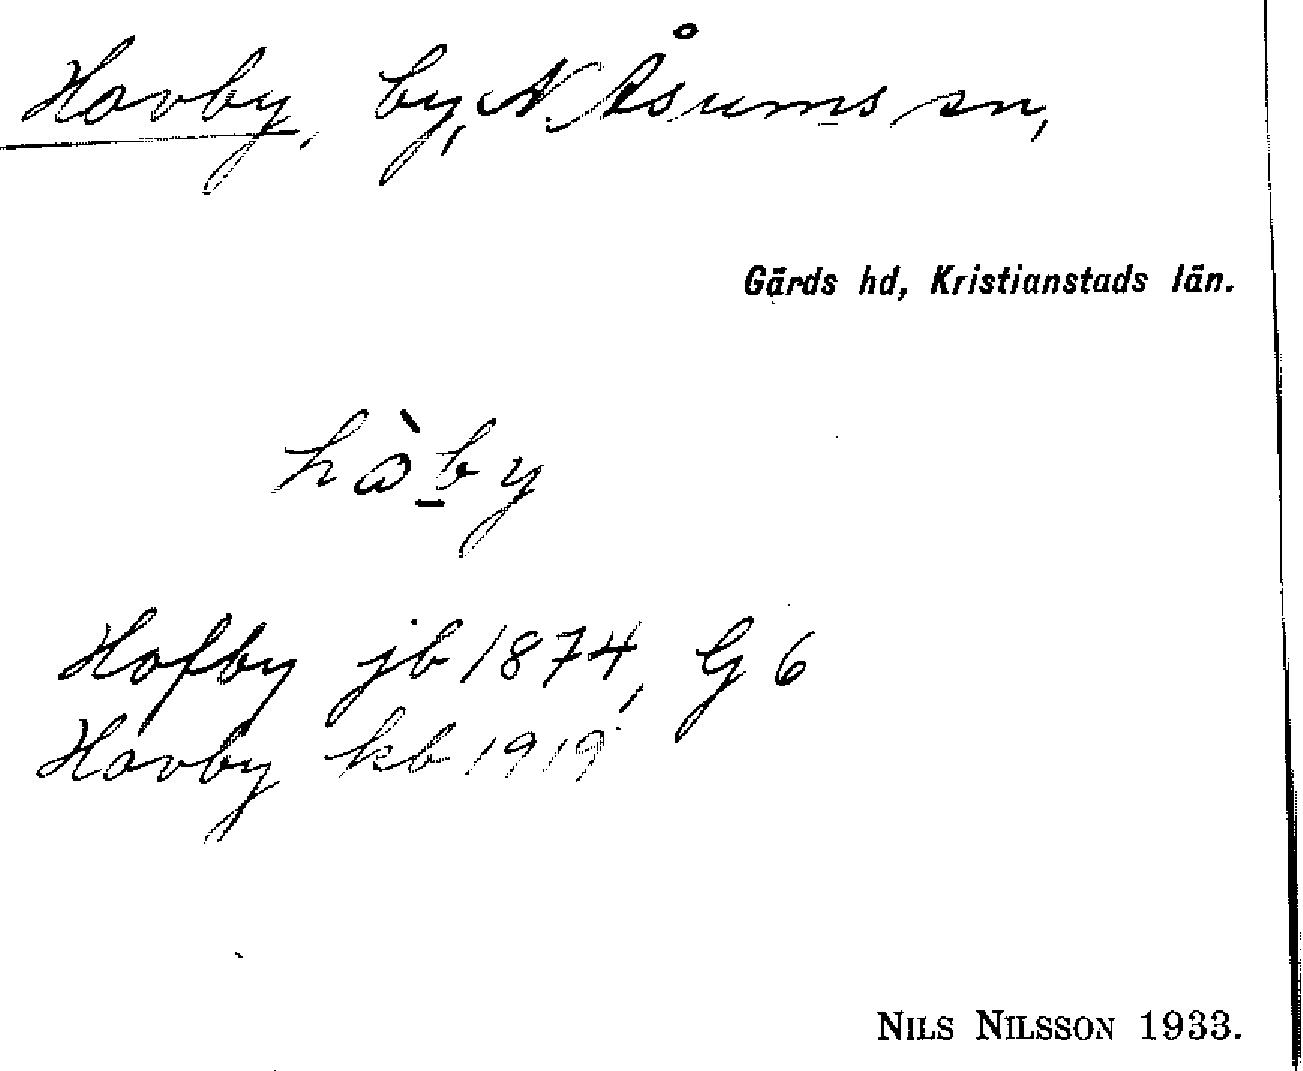 Havby, by, N. Åsums sn,
Gärds hd, Kristianstads län.
hàby
Hafby jb 1874, G 6
Havby kb 1919
NILS NILSSON 1933.